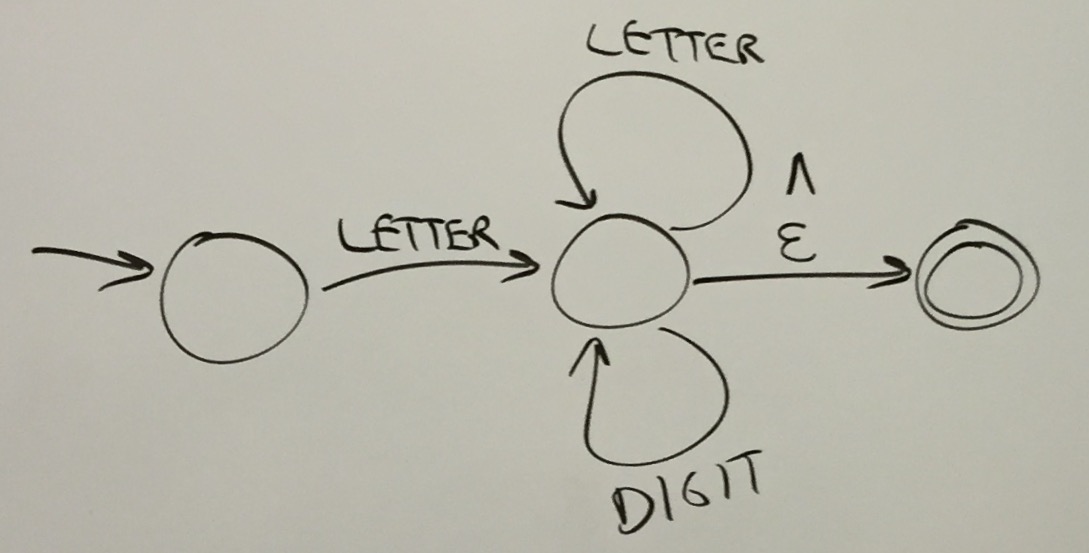 LETTER
Λ
LETTER
ε
DIGIT